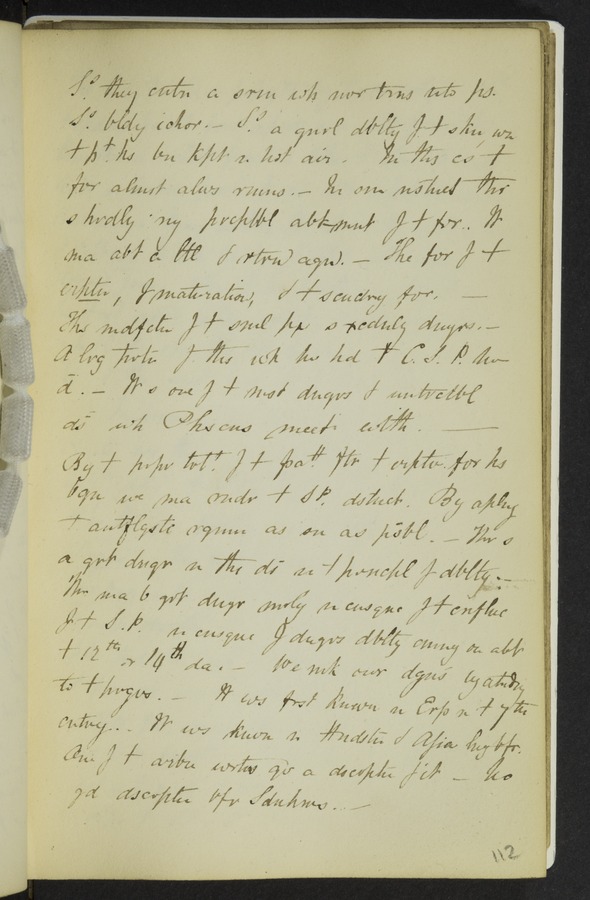 Ss. they cntn a srm wh nvr trns nto ps.
Ss. bldy ichor. — Ss. a gnrl dblty J + skn, wn
+ pt. hs bn kpt n hot air. In ths cs +
fvr almst alws runs. — In om nstncs thr
s hrdly ny prcptbl abtmnt J + fvr. It
ma abt a ltl & rtrn agn. — The fvr J +
erptn, J maturation, & + scndry fvr. —
Ths mdfctn J + sml px s xcdngly dngrs. —
A lrg prtn J ths wh hv hd + C. S. P. hv
d. — It s one J + most dngrs & untrctbl
ds wh Phscns meet with. —
By + prpr trtt J + patt ftr + erptv. fvr hs
bgn we ma rndr + S P. dstnct. By aplyng
+ antflgstc rgmn as sn as psbl. — Thr s
a grt dngr n ths ds n + prncpl J dblty. —
Thr ma b grt dngr smly n cnsqnc J + cnflnc
J + S. P. n cnsqnc J dngrs dblty cmng on abt
+ 12th or 14th da. — We mk our dgns by atndng
to + prgrs. — It ws frst known n Erp n + 7th
cntry. . It ws known n Hndstn & Asia lng bfr.
One J + arbn wrtrs gv a dscrptn J it — No
gd dscrptn bfr Sdnhms. —
112